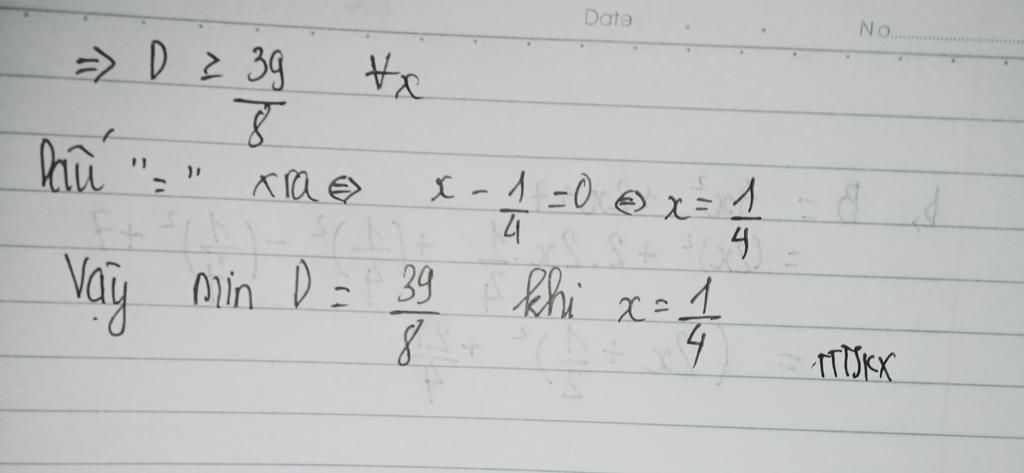 Date
No
⇒ D ≥ 39/8 ∀x
Dấu "=" xra ⇔ x - 1/4 = 0 ⇔ x = 1/4
Vậy min D = 39/8 khi x = 1/4